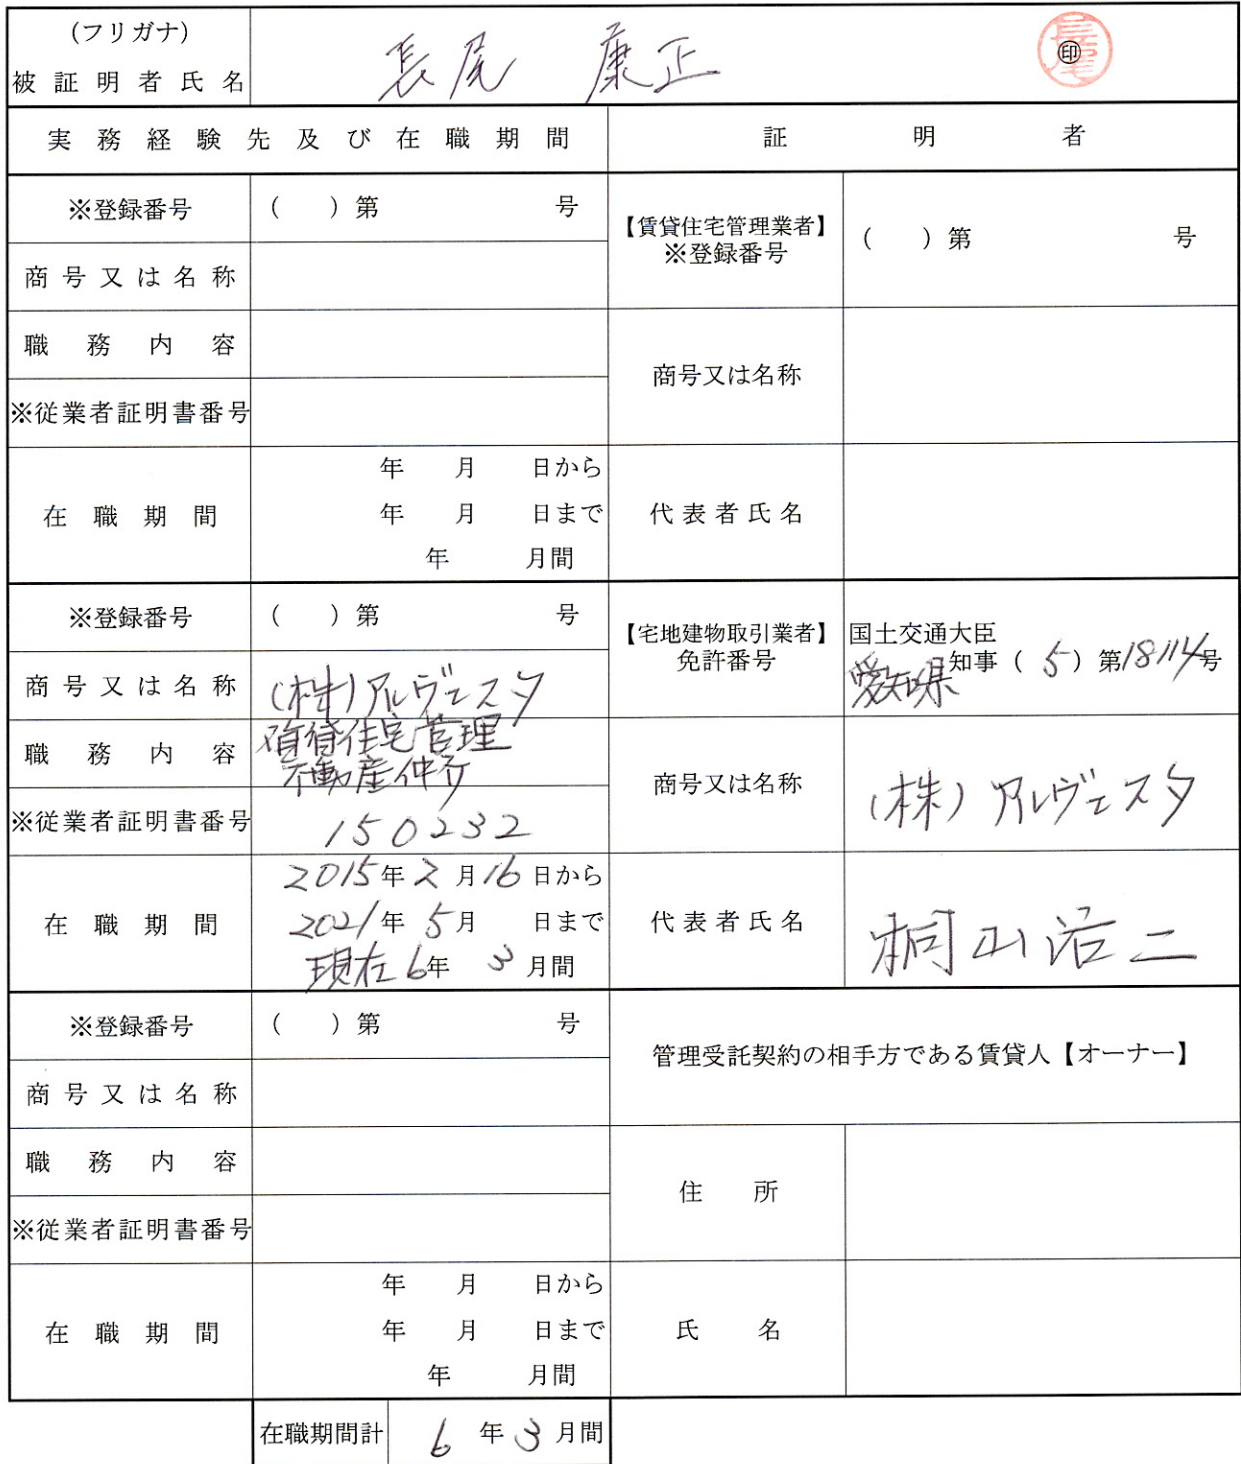 (フリガナ)
被証明者氏名
長尾 康正
長尾
印
実務経験先及び在職期間
証明者
※登録番号
( )第 号
【賃貸住宅管理業者】
※登録番号
( )第 号
商号又は名称
職務内容
商号又は名称
※従業者証明書番号
在職期間
年 月 日から
年 月 日まで
年 月間
代表者氏名
※登録番号
( )第 号
【宅地建物取引業者】
免許番号
国土交通大臣
愛知県知事(5)第18114号
商号又は名称
(株)アルヴェスタ
職務内容
賃貸住宅管理
不動産仲介
商号又は名称
(株)アルヴェスタ
※従業者証明書番号
150232
在職期間
2015年2月16日から
2021年5月 日まで
現在6年 3月間
代表者氏名
桐山浩二
※登録番号
( )第 号
管理受託契約の相手方である賃貸人【オーナー】
商号又は名称
職務内容
住所
※従業者証明書番号
在職期間
年 月 日から
年 月 日まで
年 月間
氏名
在職期間計
6年3月間